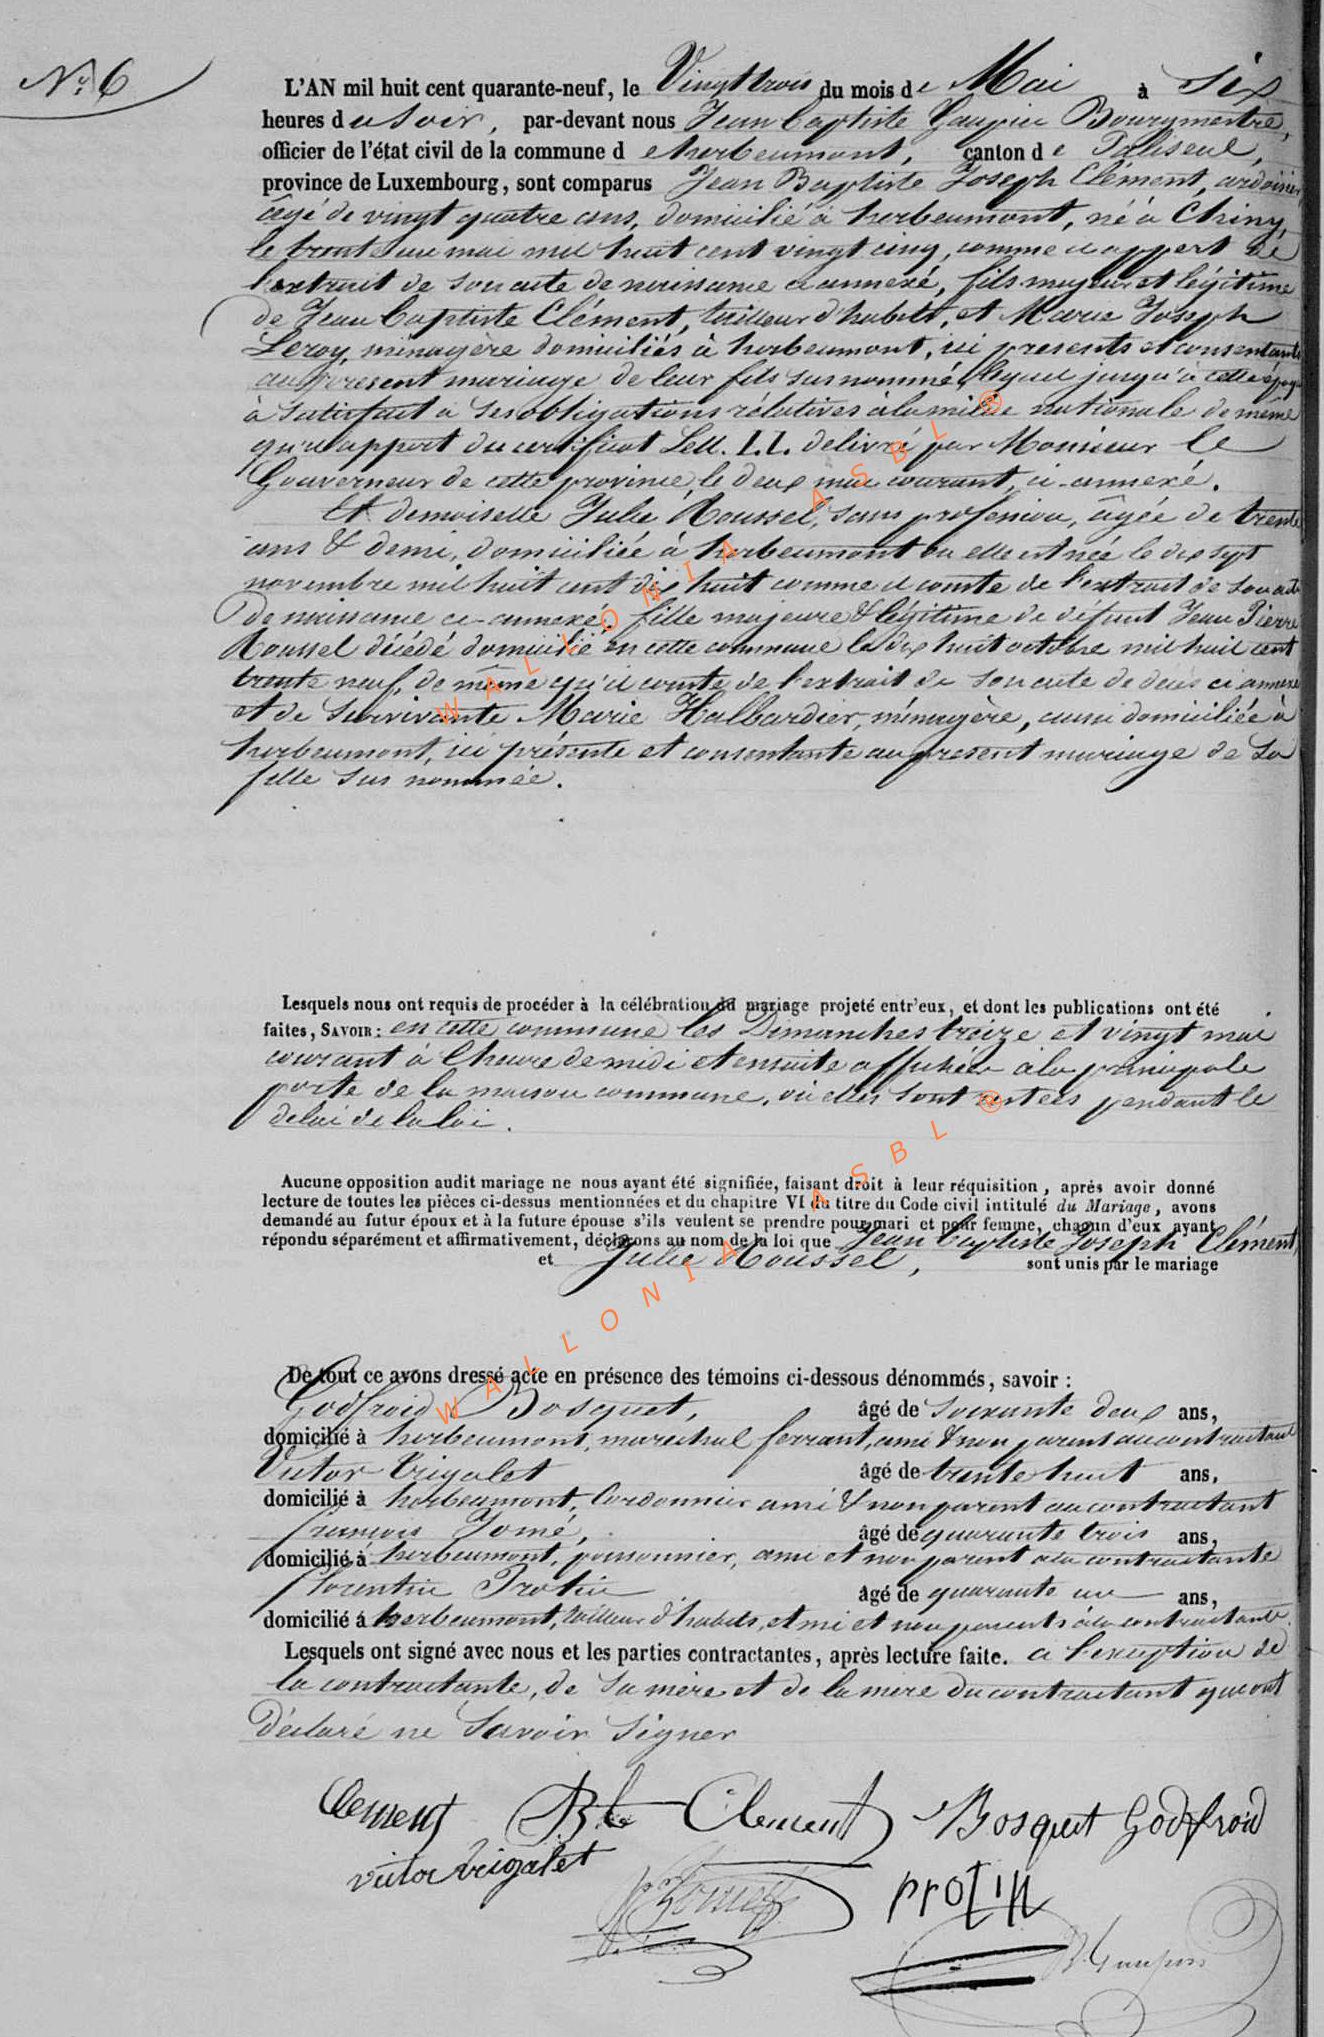 N° 6
L'AN mil huit cent quarante-neuf, le Vingt trois du mois de Mai à six
heures du Soir, par-devant nous Jean Baptiste Gaupin Bourgmestre,
officier de l'état civil de la commune d e herbeumont, canton de Paliseul,
province de Luxembourg, sont comparus Jean Baptiste Joseph Clément, ardoisier
âgé de vingt quatre ans, domicilié à herbeumont, né à Chiny,
le trent mai mil huit cent vingt cinq, comme il appert de
l'extrait de son acte de naissance ci annexé, fils majeur et légitime
de Jean Baptiste Clément, tailleur d'habits, et Marie Joseph
Leroy, ménagère domiciliés à herbeumont, ici presents et consentants
au présent mariage de leur fils susnommé, lequel jusqu'à cette époque
à satisfait à ses obligations rélatives à la milice nationale de même
qu'il appert du certificat Litt. I.I. delivré par Monsieur le
Gouverneur de cette province, le deux mai courant, ci-annexé.
Et demoiselle Julie Roussel, sans profession, âgée de trente
ans & demi, domiciliée à herbeumont ou elle est née le dix sept
novembre mil huit cent dix huit comme il comte de l'extrait de son acte
de naissance ci-annexé, fille majeure & légitime de défunt Jean Pierre
Roussel décédé domicilié en cette commune le dix huit octobre mil huit cent
trente neuf, de même qu'il comte de l'extrait de son acte de décès ci annexé
et de survivante Marie Hallbardier, ménagère, aussi domiciliée à
herbeumont, ici présente et consentante au present mariage de sa
fille sus nommée.
Lesquels nous ont requis de procéder à la célébration du mariage projeté entr'eux, et dont les publications ont été
faites, SAVOIR : en cette commune les Dimanches treize et vingt mai
courant à l'heure de midi et ensuite affichée à la principale
porte de la maison commune, où elles sont restées pendant le
delai de la loi.
Aucune opposition audit mariage ne nous ayant été signifiée, faisant droit à leur réquisition, après avoir donné
lecture de toutes les pièces ci-dessus mentionnées et du chapitre VI du titre du Code civil intitulé du Mariage, avons
demandé au futur époux et à la future épouse s'ils veulent se prendre pour mari et pour femme, chacun d'eux ayant
répondu séparément et affirmativement, déclarons au nom de la loi que Jean Baptiste Joseph Clément,
et Julie Roussel, sont unis par le mariage
De tout ce avons dressé acte en présence des témoins ci-dessous dénommés, savoir :
Godfroid Bosquet, âgé de soixante deux ans,
domicilié à herbeumont, maréchal ferrant, ami & non parent au contractant
Victor Trigalet âgé de trente huit ans,
domicilié à herbeumont, Cordonnier ami & non parent au contractant
françois Jomé, âgé de quarante trois ans,
domicilié à herbeumont, poissonnier, ami et non parent à la contractante
florentin Protin âgé de quarante un ans,
domicilié à herbeumont, tailleur d'habits, ami et non parent à la contractante.
Lesquels ont signé avec nous et les parties contractantes, après lecture faite. à l'exception de
la contractante, de sa mère et de la mère du contractant qui ont
déclaré ne savoir signer
Clement Bte Clement Bosquet Godfroid
victor trigalet
Jomé protin
Gaupin
WALLONIA ASBL ®
WALLONIA ASBL ®